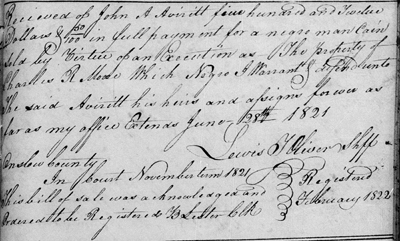 Received of John A Averitt five hundred and Twelve
Dollars & 50/100 in full payment for a negro man Cain
Sold by Virtue of an Execution as The property of
Charles R. Which Negro I Warrant & Defend unto
The said Averitt his heirs and assigns forever as
far as my office Extends June 18th 1821
Lewis T Oliver Shff
Onslow County
In Court November term 1821
This bill of sale was acknowledged and
Ordered to be Registered B Lester Clk
Registered
February 1822